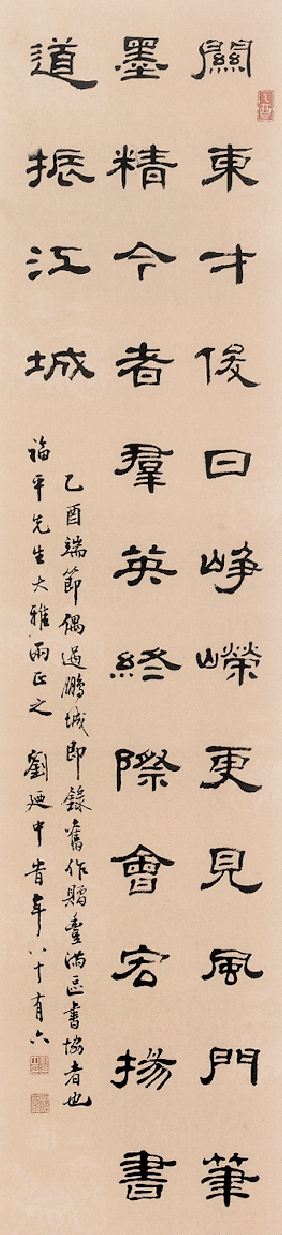 關東才俊日崢嶸更見風門筆
墨精今者羣英終際會宏揚書
道振江城
乙酉端節偶過鵬城即錄舊作贈豐滿區書協者也
福平先生大雅兩正之 劉廼中昔年八十有六